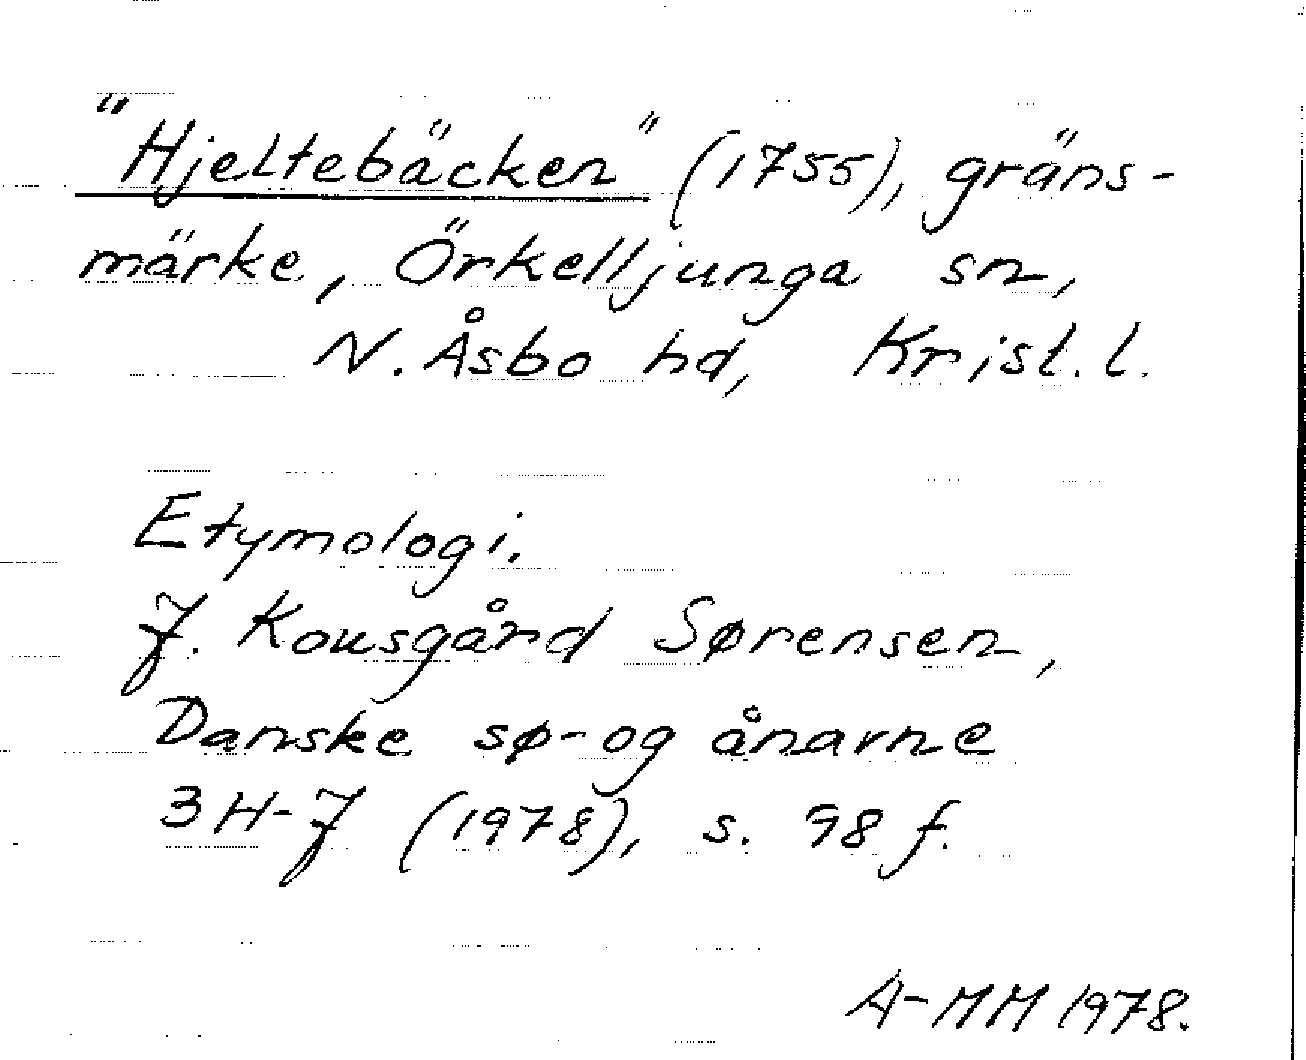 "Hjeltebäcken" (1755), gräns-
märke, Örkelljunga sn,
N. Åsbo hd, Krist. l.
Etymologi.
J. Kousgård Sørensen,
Danske sø- og ånavne
3 H-J (1978), s. 98 f.
A-MM 1978.